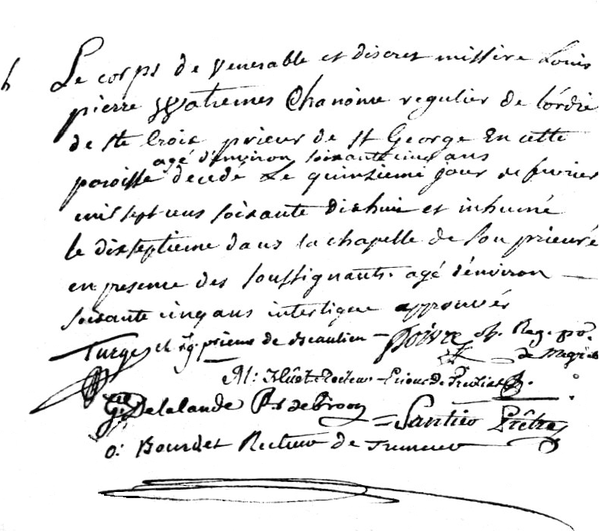 Le corps de venerable et discret missire Louis
pierre Watremes Chanoine regulier de l'ordre
de Ste Croix prieur de St George En cette
agé d'environ soixante cinq ans
paroisse decede Le quinzieme jour de fevrier
mil sept cens soixante dixhuit et inhumé
le dixseptieme dans la chapelle de son prieuré
en presence des soussignants. agé d'environ
soixante cinq ans interligne approuvés
prieur de
ch. Reg. po.
de
M:
G. Delalande de Broon
Prêtre
o: Bourdet Recteur de